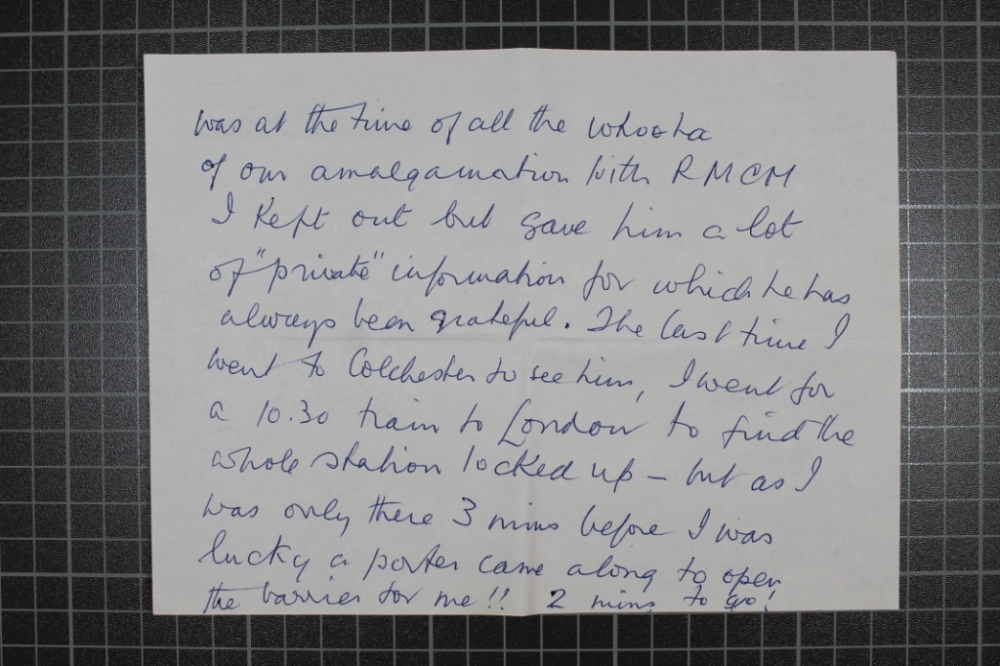 was at the time of all the whooha
of our amalgamation with RMCM
I kept out but gave him a lot
of "private" information for which he has
always been grateful. The last time I
went to Colchester to see him, I went for
a 10.30 train to London to find the
whole station locked up – but as I
was only there 3 mins before I was
lucky a porter came along to open
the barrier for me!! 2 mins to go!